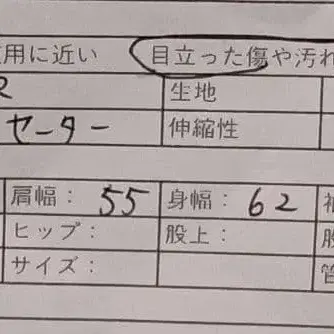 用に近い 目立った傷や汚れ
生地
セーター 伸縮性
肩幅: 55 身幅: 62
ヒップ: 股上:
サイズ: